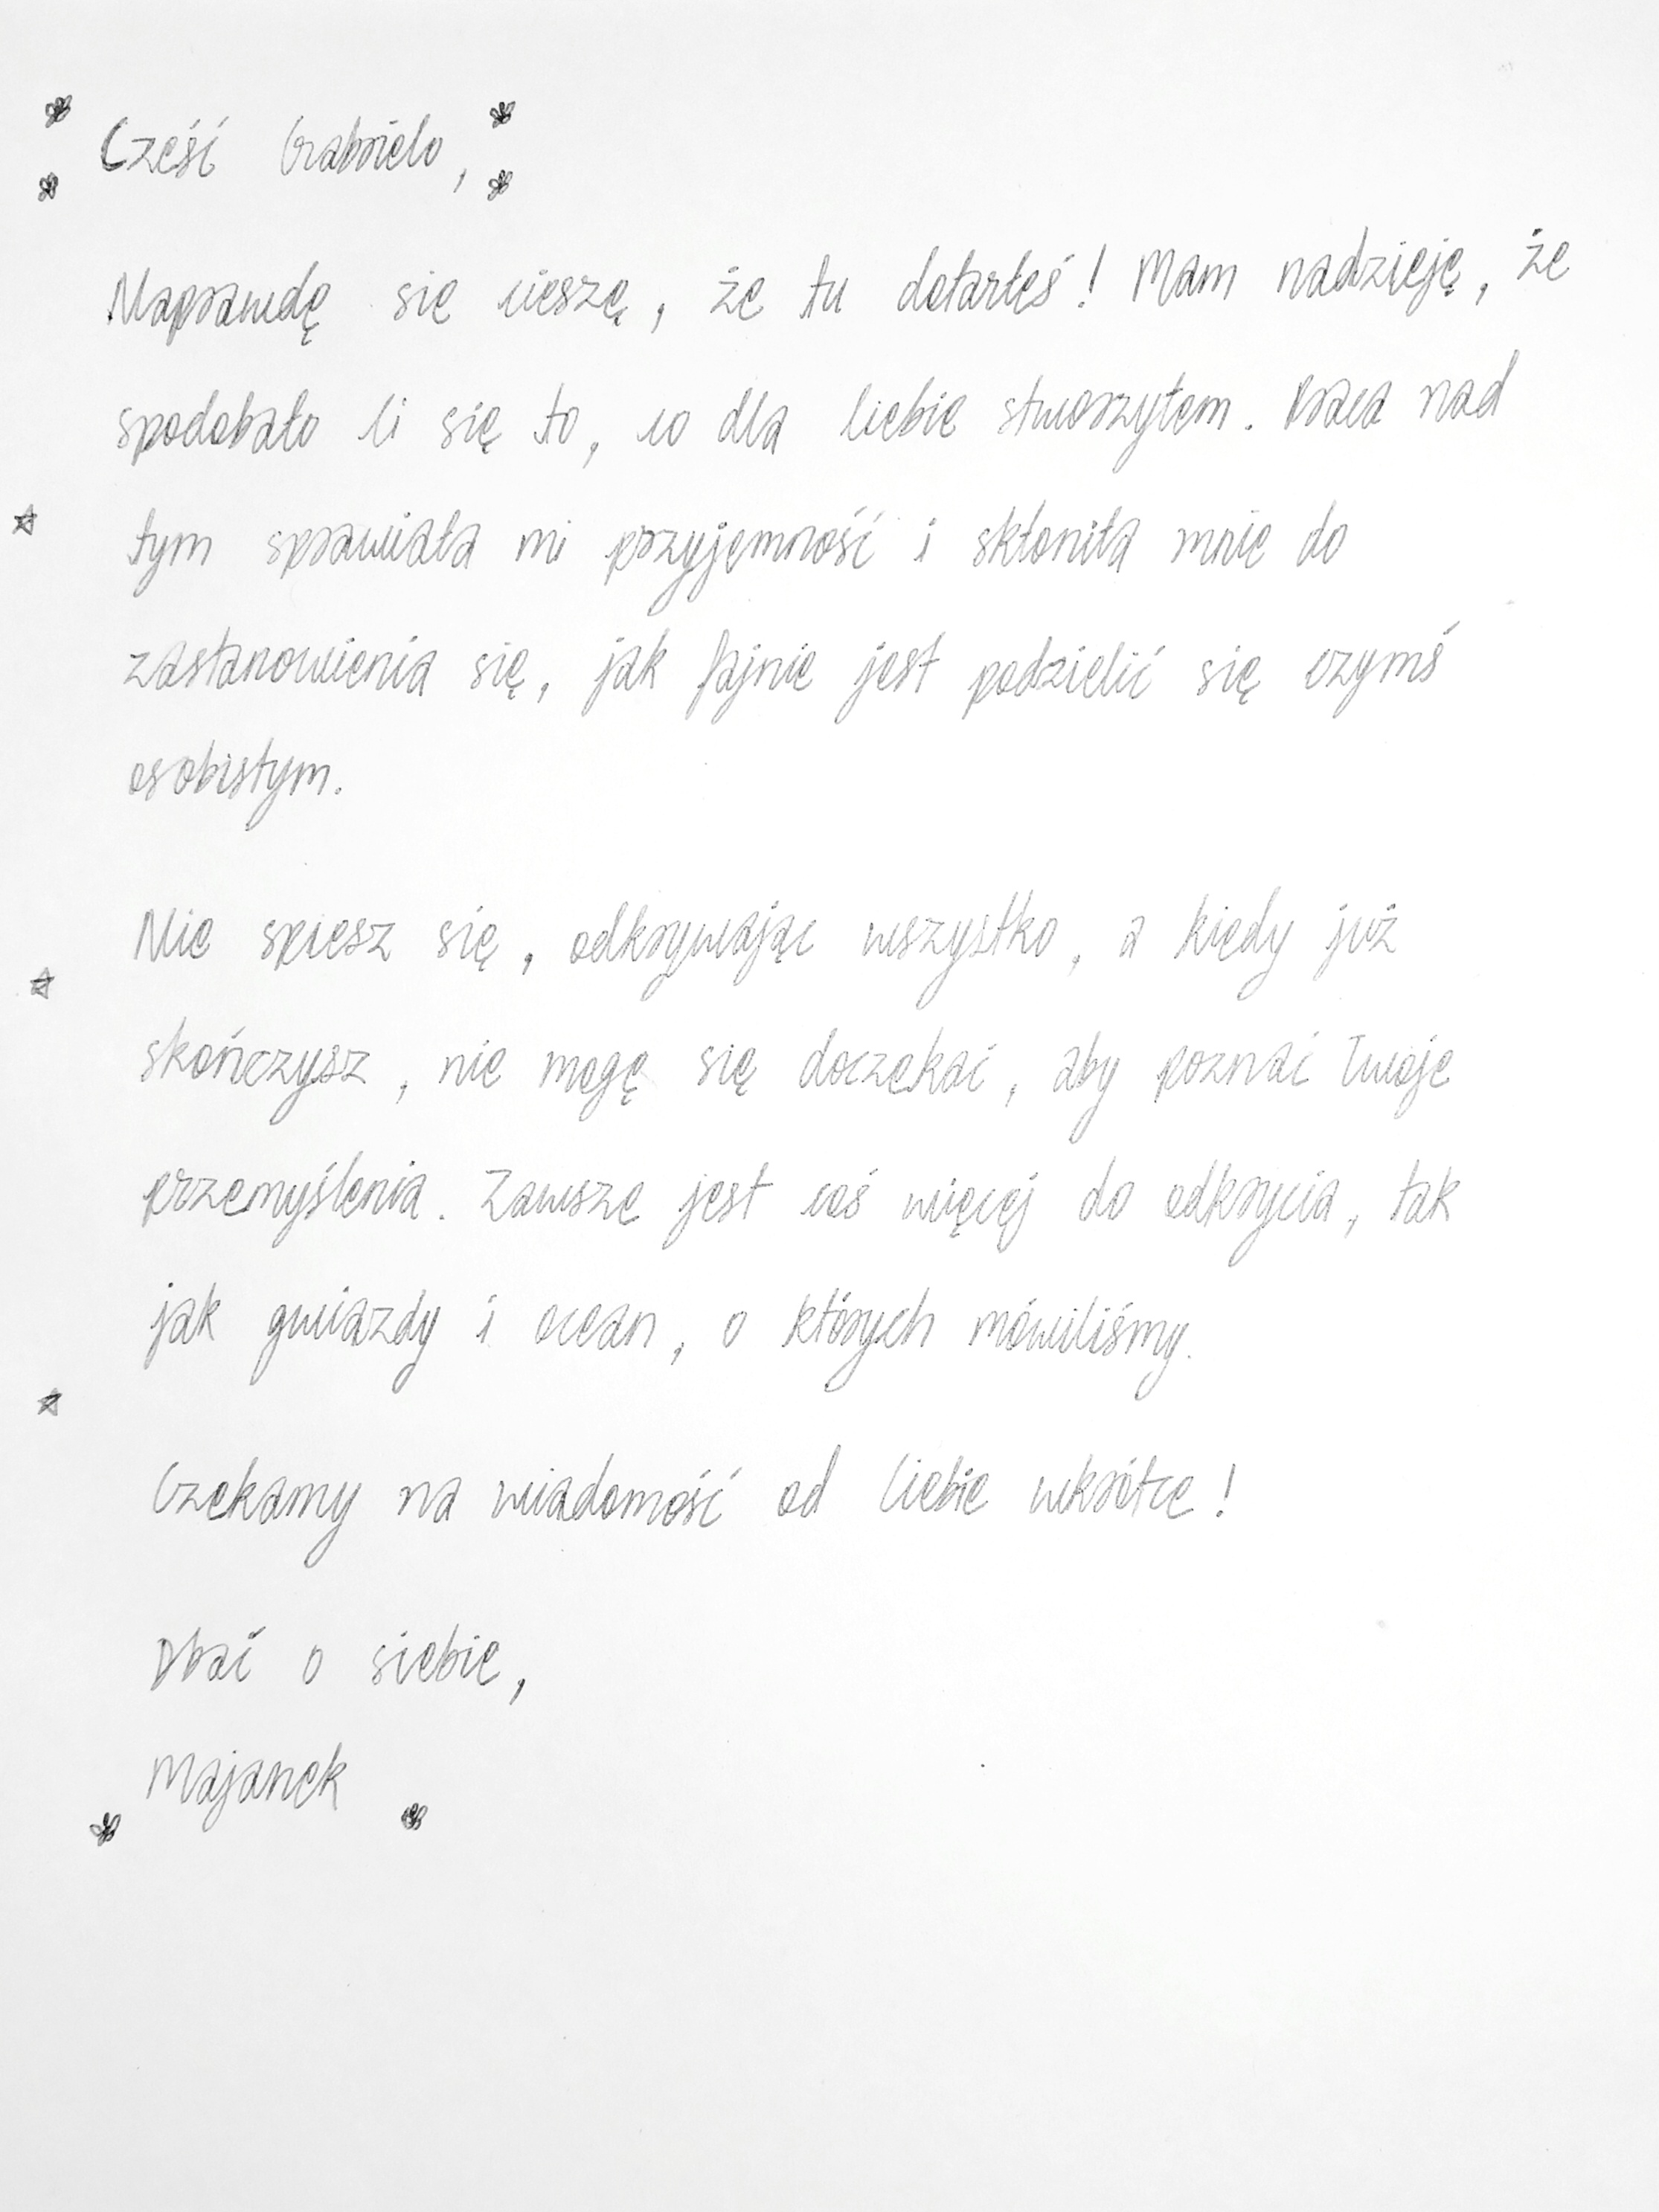 Cześć Gabrielo,
Naprawdę się cieszę, że tu dotarłeś! Mam nadzieję, że
spodobało Ci się to, co dla Ciebie stworzyłem. Praca nad
tym sprawiała mi przyjemność i skłoniła mnie do
zastanowienia się, jak fajnie jest podzielić się czymś
osobistym.
Nie spiesz się, odkrywając wszystko, a kiedy już
skończysz, nie mogę się doczekać, aby poznać Twoje
przemyślenia. Zawsze jest coś więcej do odkrycia, tak
jak gwiazdy i ocean, o których mówiliśmy.
Czekamy na wiadomość od Ciebie wkrótce!
Dbać o siebie,
Majanek